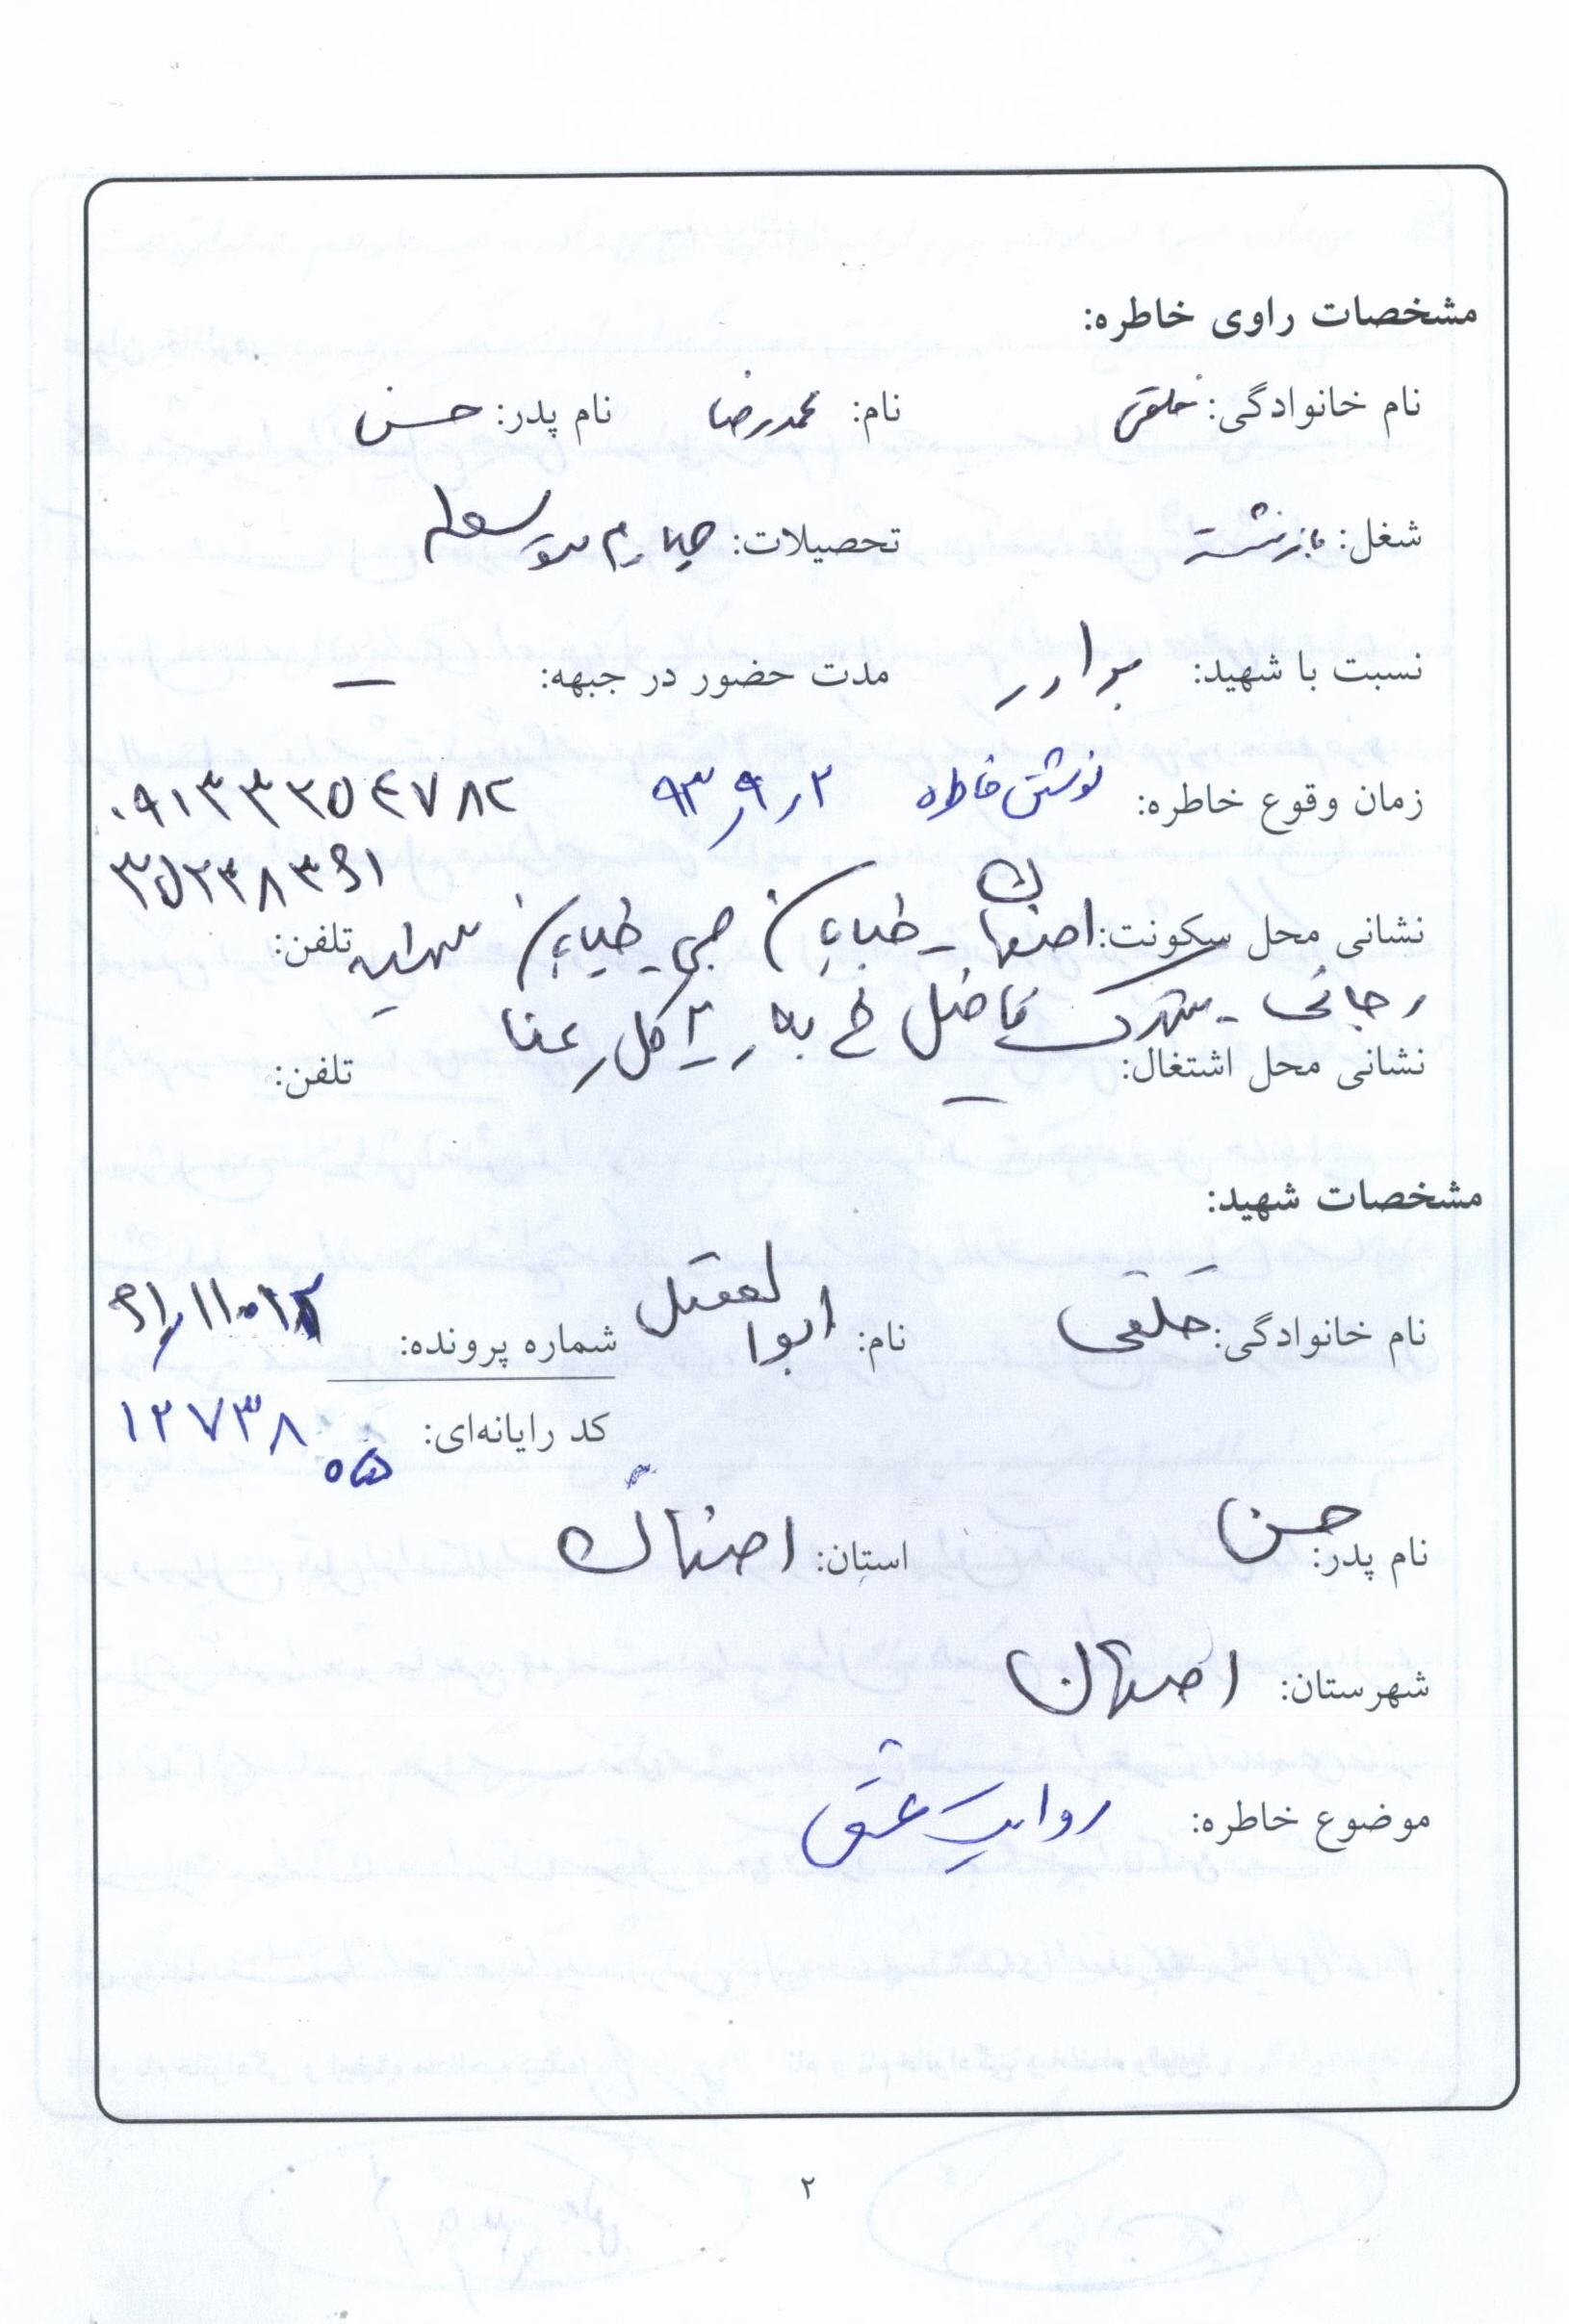 مشخصات راوی خاطره:
نام خانوادگی: خلقی نام: محمدرضا نام پدر: حسن
شغل: بازنشسته تحصیلات: چهارم متوسطه
نسبت با شهید: برادر مدت حضور در جبهه: –
زمان وقوع خاطره: نوشتن خاطره ۹۳٫۹٫۲ ۰۹۱۳۳۲۵۴۷۸۲
۳۵۲۳۸۳۶۱
نشانی محل سکونت: اصفهان – خیابان جی – خیابان شهید تلفن:
رجائی – شهرک فاضل خ بهار ۲ گل رعنا
نشانی محل اشتغال: – تلفن:
مشخصات شهید:
نام خانوادگی: خلقی نام: ابوالفضل شماره پرونده:
کد رایانه‌ای: ۱۲۷۳۸
نام پدر: حسن استان: اصفهان
شهرستان: اصفهان
موضوع خاطره: روایت عشق
۲